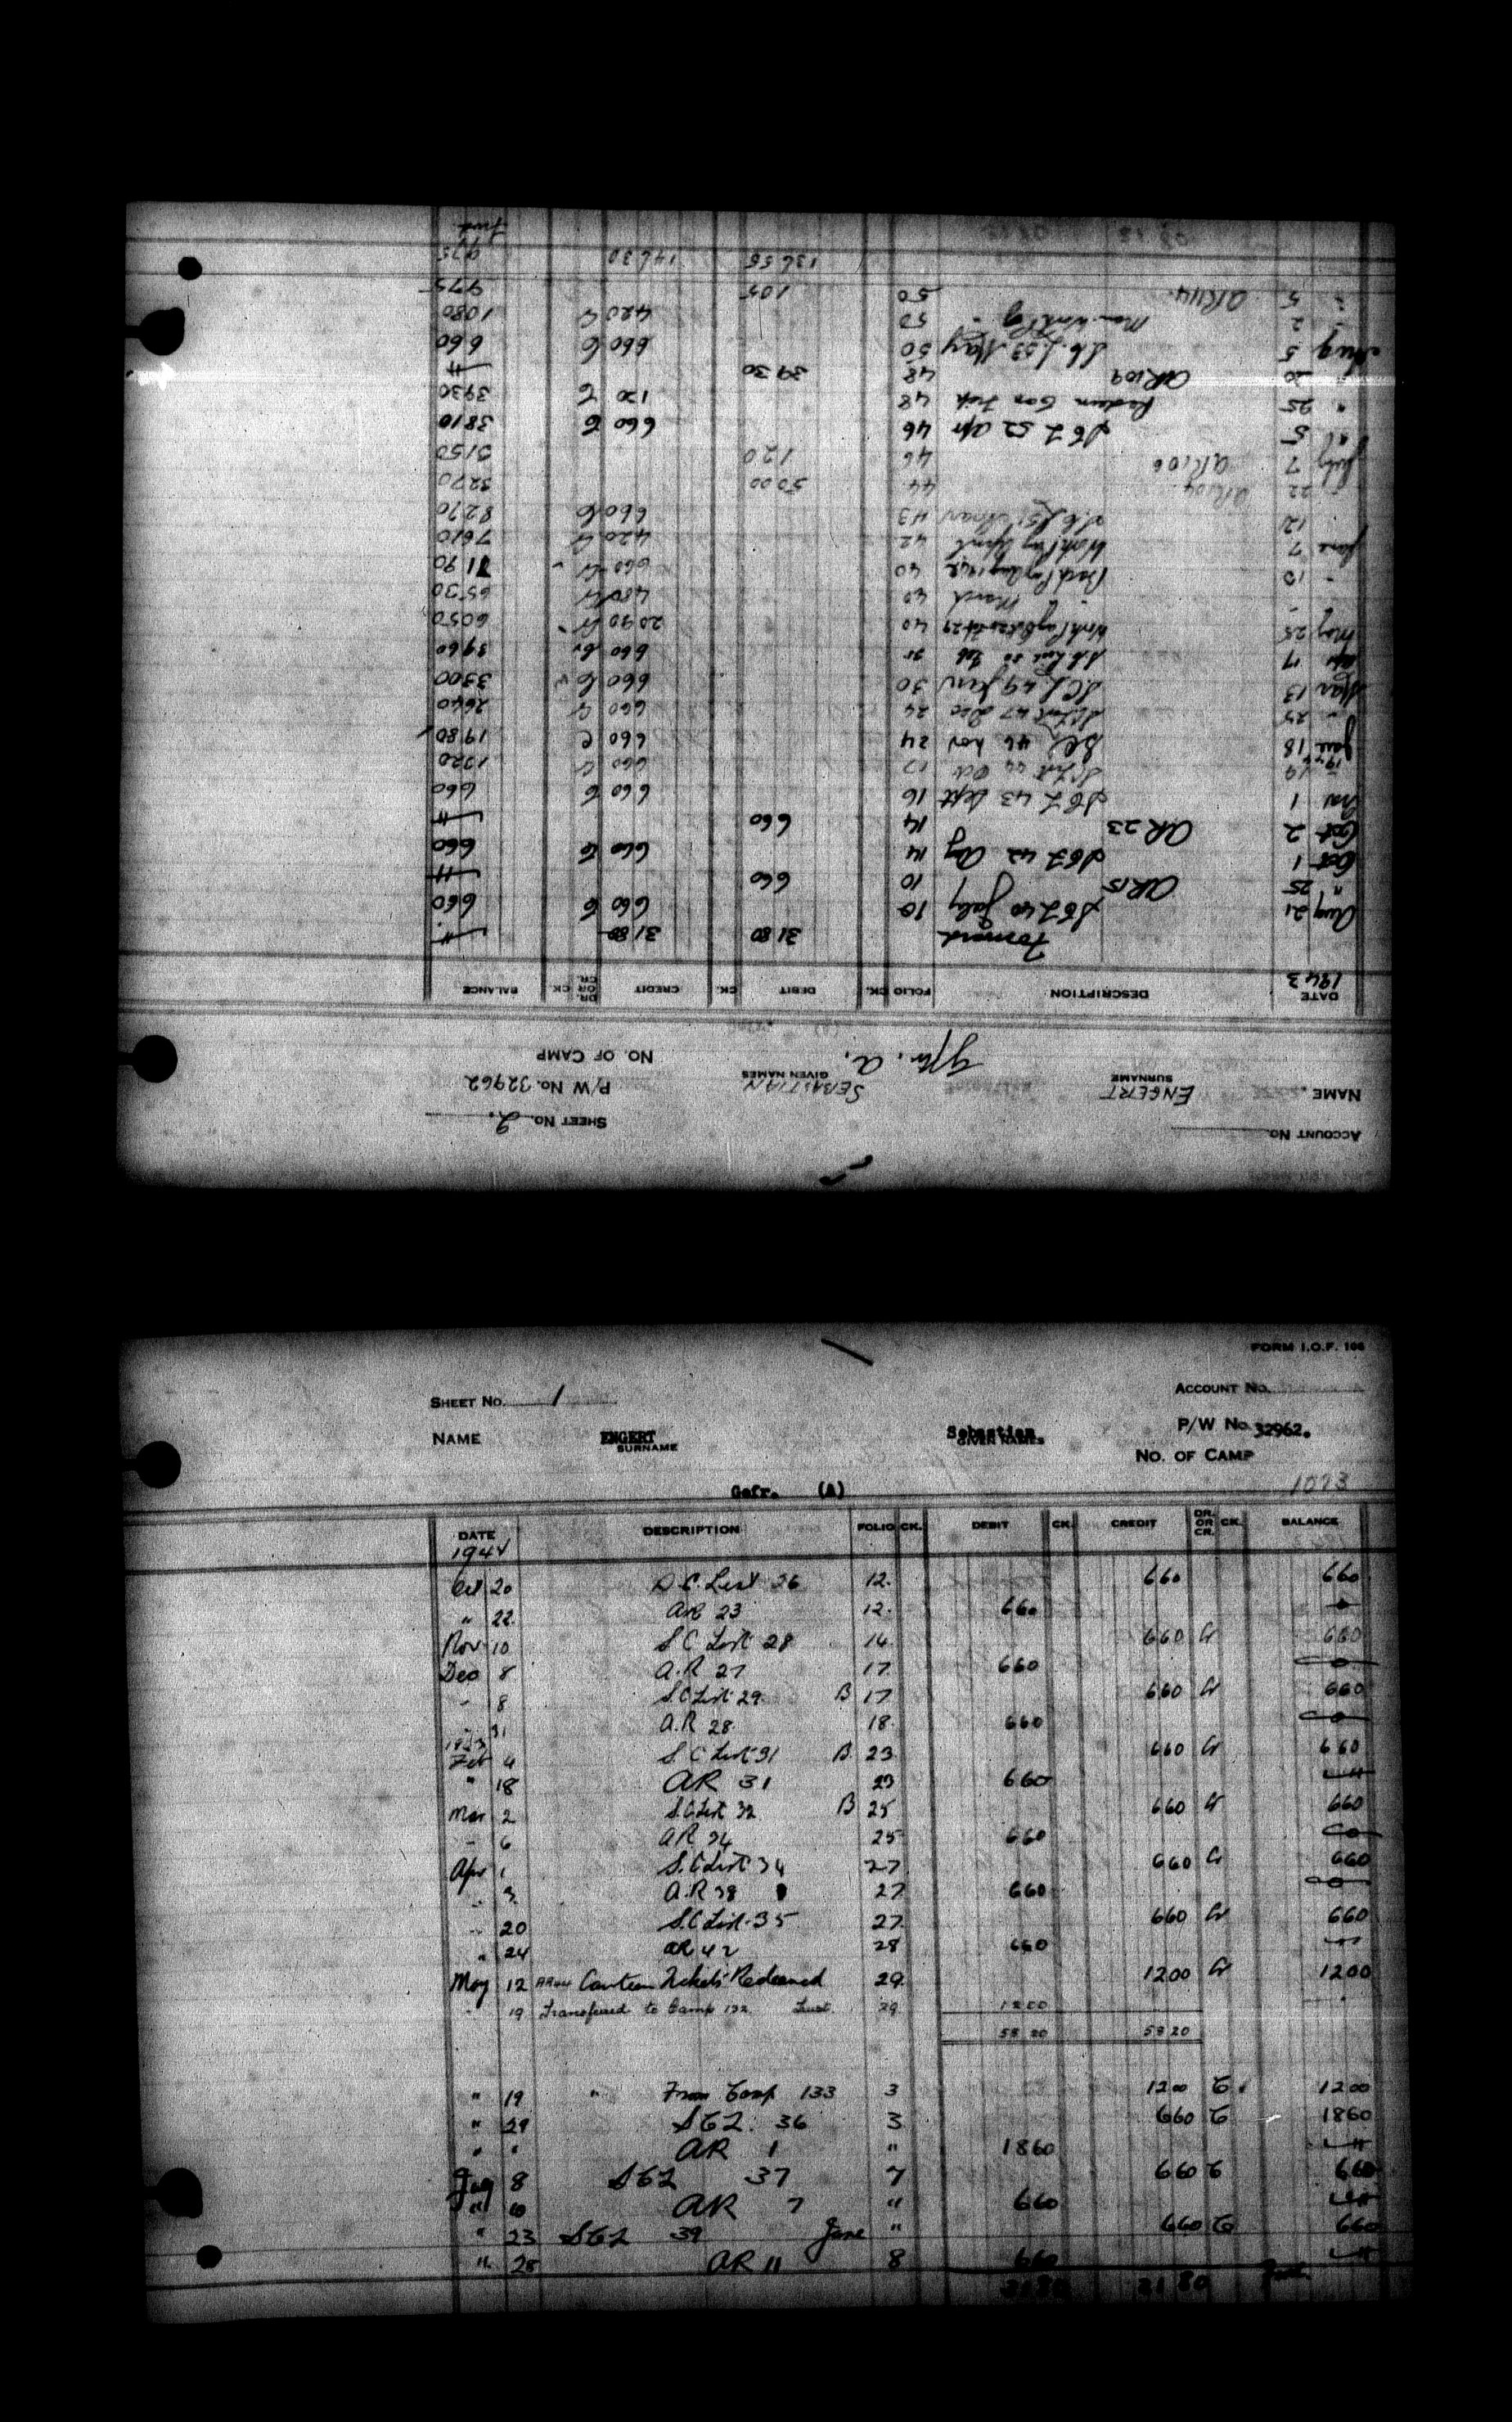 ACCOUNT No.
SHEET No. 2.
NAME. ENGERT SEBASTIAN P/W No. 32962
SURNAME GIVEN NAMES
Gfr. A. NO. OF CAMP
DATE DESCRIPTION FOLIO CK. DEBIT CK. CREDIT DR. OR CR. CK. BALANCE
1943
Forward 31 80 31 80
Aug 21 S C L 40 July 10 6 60 C 6 60
" 25 AR 15 10 6 60
Oct 1 S C L 42 Aug 14 6 60 C 6 60
Oct 2 AR 23 14 6 60
Nov 1 S C L 43 Sept 16 6 60 C 6 60
19 17 6 60 Cr 13 20
Jan 18 46 Nov 24 6 60 C 19 80
25 47 Dec 24 6 60 Cr 26 40
Mar 13 S.C.L 49 Jan 30 6 60 C 33 00
Apr 17 Feb 35 6 60 Cr 39 60
May 25 Work Pay 40 20 90 Cr 60 50
" March 40 4 80 Cr 65 30
" 10 Back Pay Aug 1942 40 6 60 Cr 71 90
June 7 Work Pay April 42 4 20 Cr 76 10
12 S.C.L 51 Mar 43 6 60 C 82 70
" 22 AR 104 44 50 00 32 70
July 7 AR 106 46 1 20 31 50
" 5 S C L 52 Apr 46 6 60 C 38 10
" 25 Redeem Can Tick 48 1 20 C 39 30
" 20 AR 109 48 39 30
Aug 5 S.C.L. 53 May 50 6 60 C 6 60
" 2 50 4 20 C 10 80
" 5 AR 114 50 1 05 9 75
136 55 146 30 9 75
Fwd
FORM I.O.F. 106
SHEET No. 1 ACCOUNT No.
NAME ENGERT Sebastian P/W No. 32962.
SURNAME GIVEN NAMES
NO. OF CAMP
Gefr. (A) 1073
DATE DESCRIPTION FOLIO CK. DEBIT CK. CREDIT DR. OR CR. CK. BALANCE
Oct 20 S.C. List 26 12. 6 60 6 60
" 22. AR 23 12. 6 60 0
Nov 10 S C List 28 14 6 60 Cr 6 60
Dec 8 A.R 27 17 6 60 0
" 8 S.C List 29. B 17 6 60 Cr 6 60
" 31 A.R 28. 18. 6 60 0
1943
Feb 4 S. C List 31 B 23 6 60 Cr 6 60
" 18 AR 31 23 6 60
Mar 2 S.C List 32 B 25 6 60 Cr 6 60
" 6 AR 34 25 6 60 0
Apr 1 S.C List 34 27 6 60 Cr 6 60
" 3 A.R 38 27 6 60 0
" 20 S.C List 35 27. 6 60 Cr 6 60
" 24 AR 42 28 6 60
May 12 Canteen Tickets Redeemed 29. 12 00 Cr 12 00
" 19 Transferred to Camp 132 Trust. 29 12 00
58 20 58 20
" 19 " From Camp 133 3 12 00 C. 12 00
" 29 S C L. 36 3 6 60 C 18 60
" " AR 1 " 18 60
July 8 S C L 37 7 6 60 C 6 60
" 10 AR 7 " 6 60
" 23 S C L 39 June " 6 60 C 6 60
" 28 AR 11 8 6 60
31 80 31 80